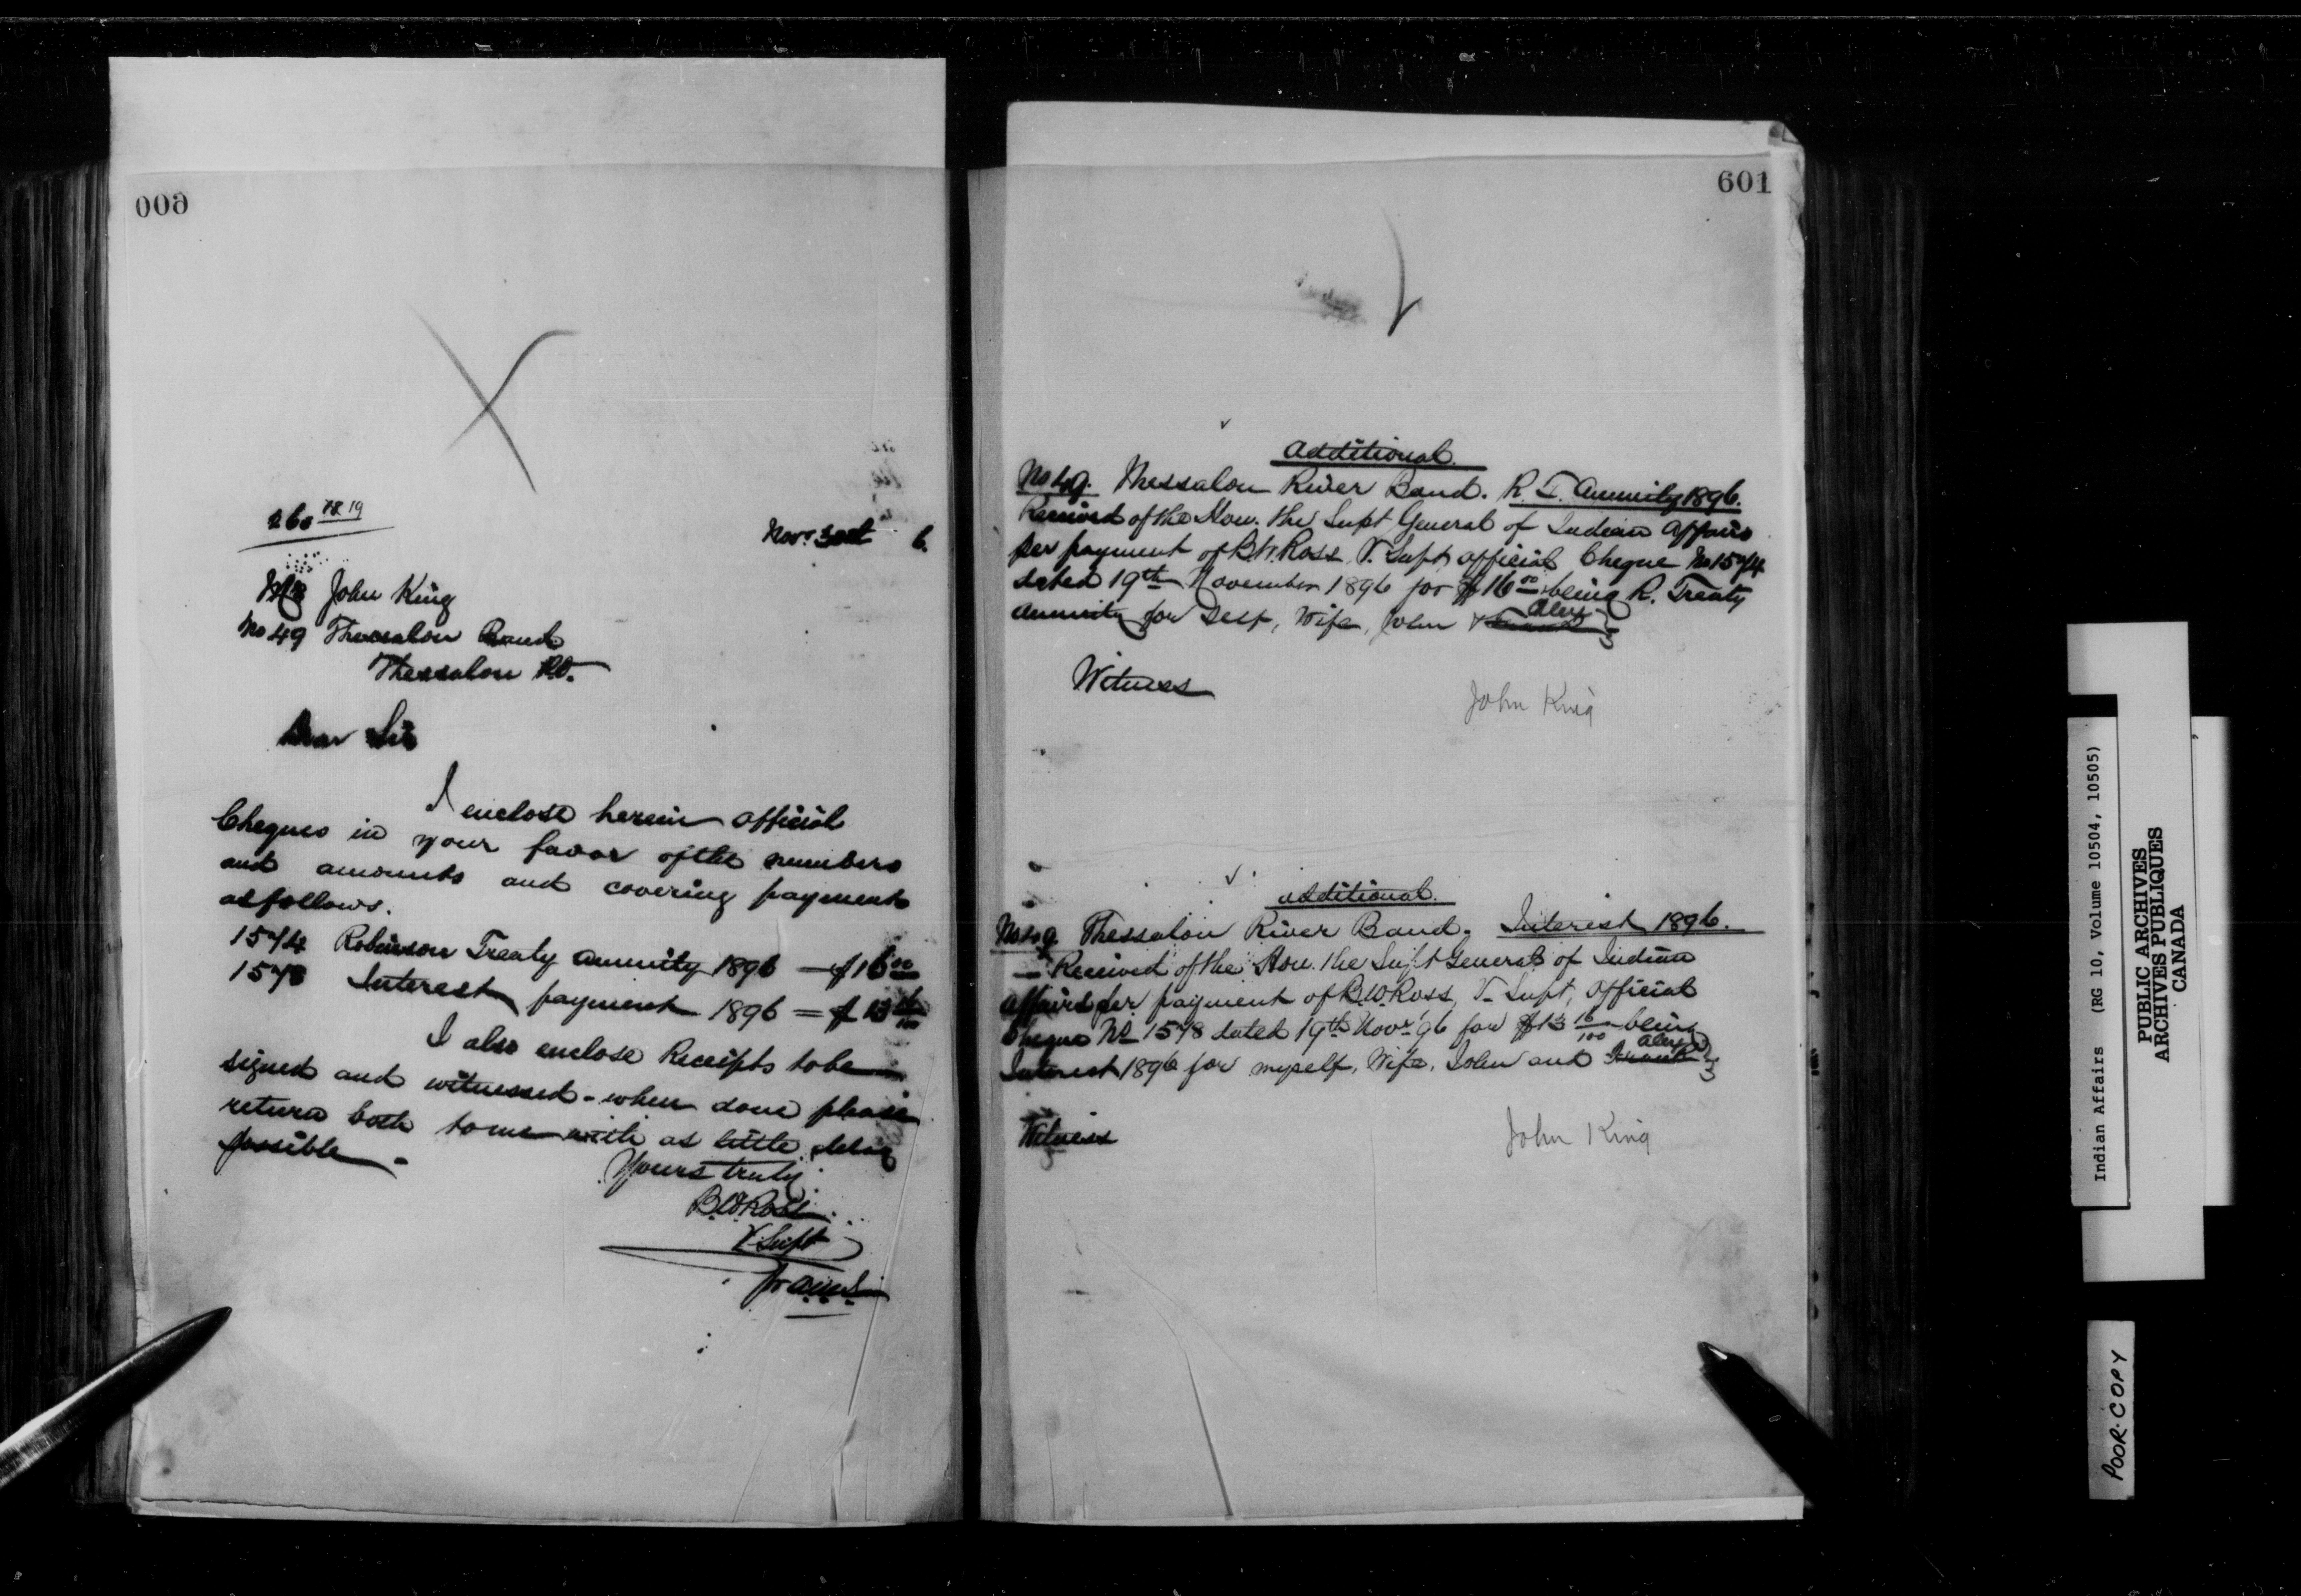 600
Novr 30th 6.
Mr John King
No 49 Thessalon Band
Thessalon P.O.
Dear Sir
I enclose herein official
Cheques in your favor of the numbers
and amounts and covering payments
as follows.
1574 Robinson Treaty annuity 1896 — $16 00
1578 Interest payment 1896 = $13 16/100
I also enclose Receipts to be
signed and witnessed - when done please
return both to me with as little delay
possible -
Yours truly
B.W. Ross
V. Supt
601
Additional.
No 49. Thessalon River Band. R. T. Annuity 1896.
Received of the Hon. the Supt General of Indian Affairs
per payment of B.W. Ross, V. Supt, official Cheque No 1574
dated 19th November 1896 for $16 00 being R. Treaty
Annuity for Self, Wife, John & Alex
Witness
John King
Additional.
No 49. Thessalon River Band. Interest 1896.
— Received of the Hon. the Supt General of Indian
Affairs per payment of B.W. Ross, V. Supt, official
Cheque No 1578 dated 19th Novr '96 for $13 16/100 being
Interest 1896 for myself, Wife, John and Alex
Witness
John King
Indian Affairs (RG 10, Volume 10504, 10505)
PUBLIC ARCHIVES
ARCHIVES PUBLIQUES
CANADA
POOR COPY